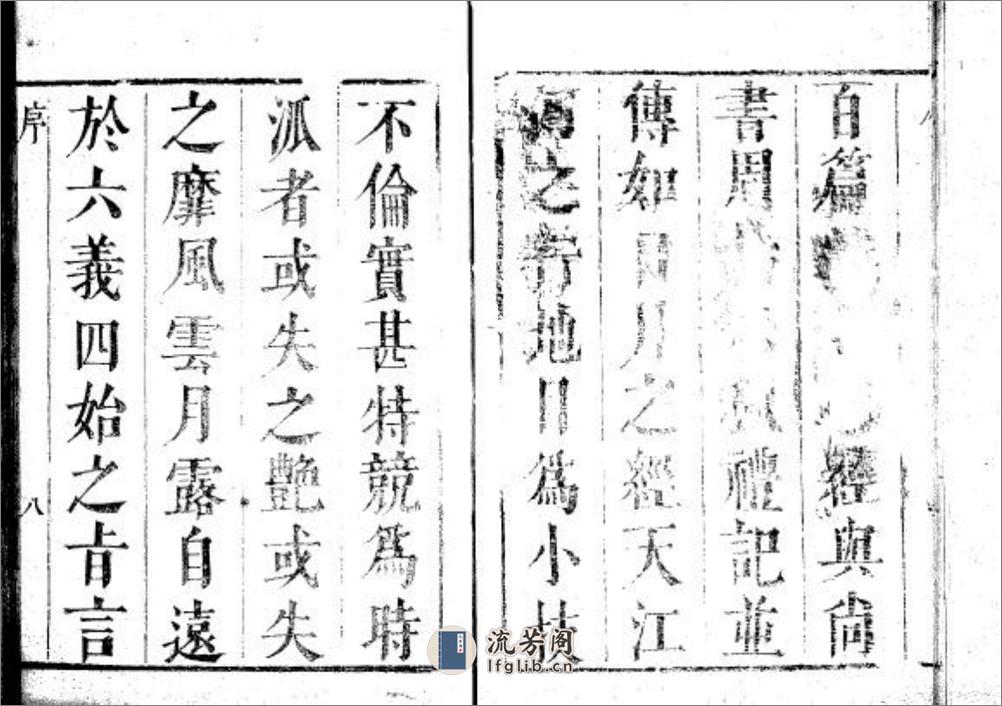 百篇經與尚
書周禮記並
傳如日月之經天江
河之行地目為小技
不倫實甚特競為時
派者或失之艷或失
之靡風雲月露自遠
於六義四始之旨言
序
八
流芳阁
lfglib.cn